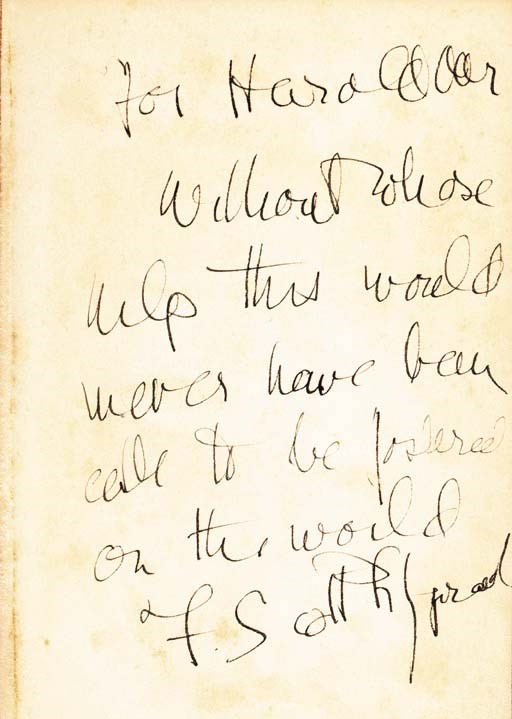 For Harold Ober
Without whose
help this would
never have been
able to be fostered
on the world
F. Scott Fitzgerald